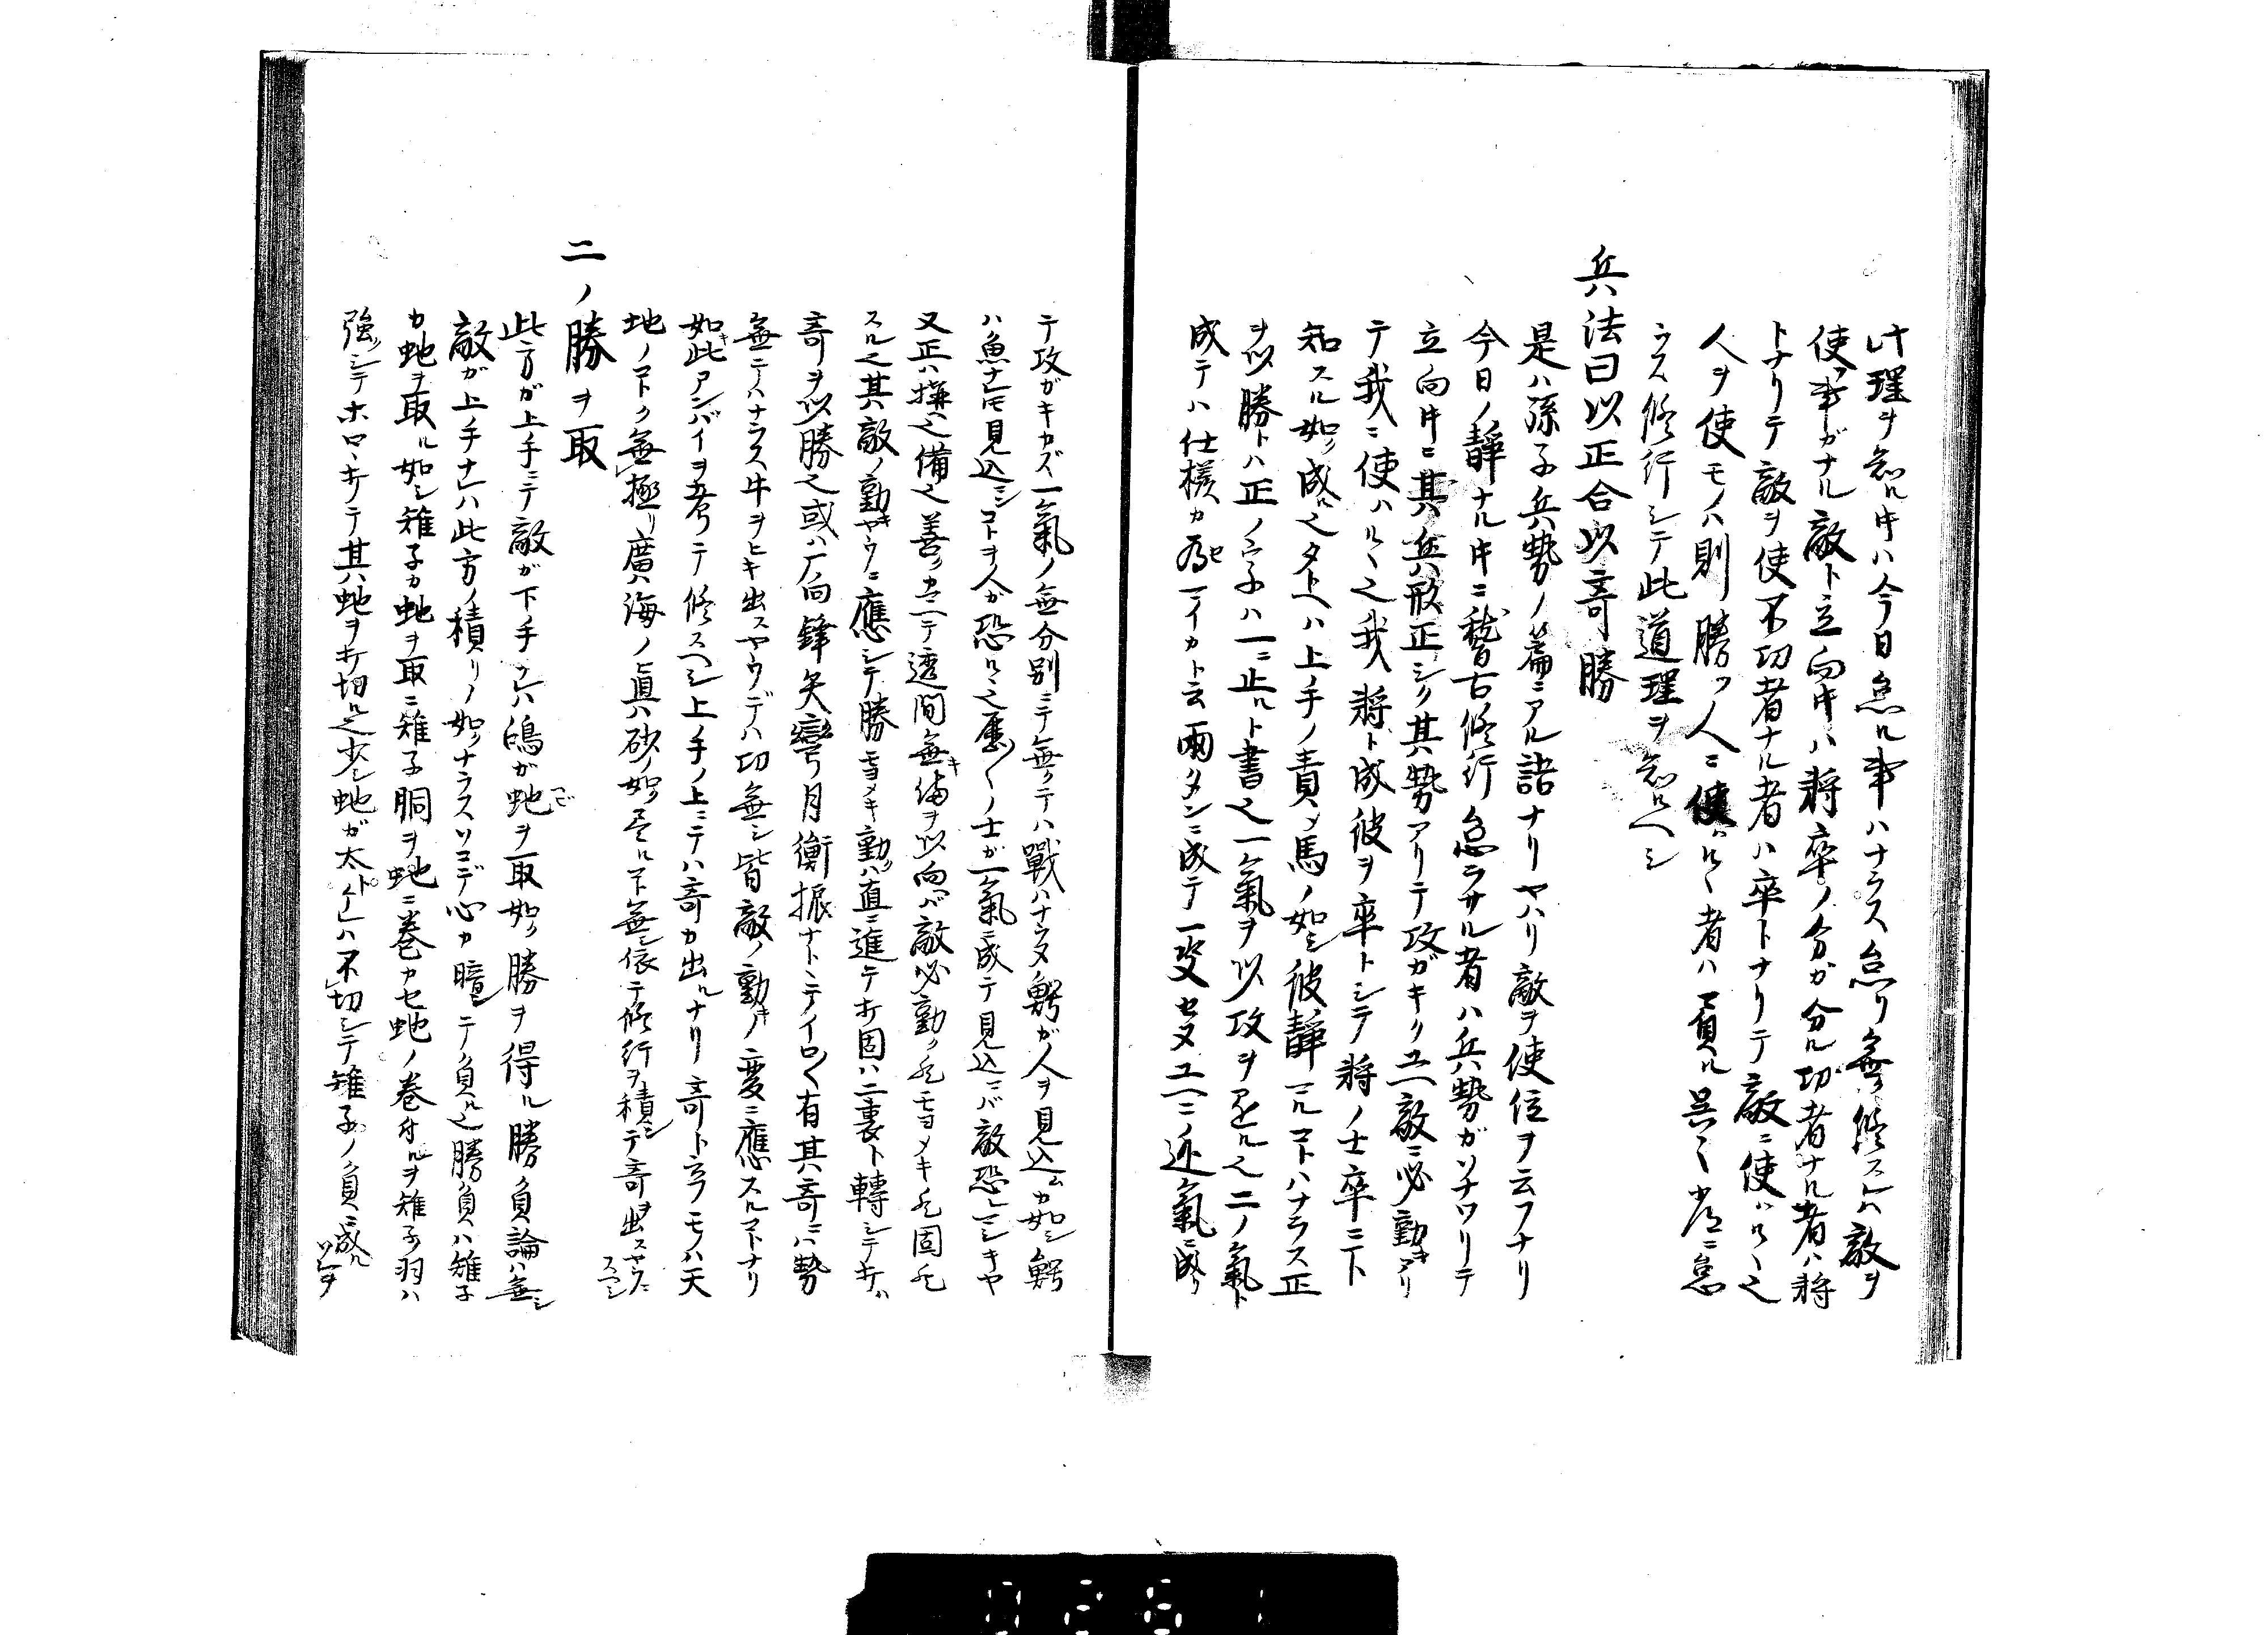 此理ヲ知ル时ハ今日怠ル事ハナラス怠リ無ク修スレハ敵ヲ
使フ事ガナル敵ト立向时ハ将卒ノ分ガ分ル功者ナル者ハ将
トナリテ敵ヲ使不功者ナル者ハ卒トナリテ敵ニ使ハルヽ之
人ヲ使モノハ則勝ツ人ニ使ハルヽ者ハ負ル呉々常ニ怠
ラス修行シテ此道理ヲ知ルヘシ
兵法曰以正合以奇勝
是ハ孫子兵勢ノ篇ニアル語ナリヤハリ敵ヲ使位ヲ云フナリ
今日ノ静ナル时ニ稽古修行怠ラサル者ハ兵勢ガソナワリテ
立向时ニ其ノ兵形正シク其勢アリテ攻ガキクユヘ敵ニ必動キアリ
テ我ニ使ハルヽ之我将ト成彼ヲ卒トシテ将ノ士卒ニ下
知スル如ク成ル之タトヘハ上手ノ責メ馬ノ如シ彼静マルコトハナラス正
ヲ以勝トハ正ノ字ハ一ニ止ルト書之一氣ヲ以攻ヲ是ル之二ノ氣ト
成テハ仕様カ為セマイカト云両タンニ成テ一致セヌユヘニノ近氣ニ成ク
テ攻ガキカズ一氣ノ無分別ニテ無クテハ戰ハナラヌ鰐ガ人ヲ見込ムカ如シ鰐
ハ魚ナレ𪜈見込シコトヲ人ガ恐ルヽ之歴〱ノ士ガ一氣ニ成テ見込ニバ敵恐レマシキヤ
又正ハ搆之備之善クカマヘテ透間無キ備ヲ以向バ敵必動ク死ヨメキ死固死
スル之其敵ノ動キヤウニ應シテ勝ヨメキ動クハ直ニ進テ打固ハ二裏ト轉シテ打バ
奇ヲ以勝之或ハ八向鋒矢彎月衡振ナトニテイロ〱有其奇ニハ勢
無ニテハナラス牛ヲヒキ出スヤウデハ功無シ皆敵ノ動キノ変ニ應スルコトナリ
如此キアンバイヲ考テ修スヘシ上手ノ上ニテハ奇カ出ルナリ奇ト云フモノハ天
地ノコトク無極リ廣海ノ眞砂ノ如ク尽ルコト無シ依テ修行ヲ積シテ奇ヲ出スヤウニスヘシ
二ノ勝ヲ取
此方ガ上手ニテ敵ガ下手ナレハ鴻ガ虵ヲ取如ク勝ヲ得ル勝負論ハ無シ
敵ガ上手ナレハ此方ノ積リノ如クナラスソコデ心カ暗シテ負ル之勝負ハ雉子
カ虵ヲ取ル如シ雉子カ虵ヲ取ニ雉子胴ヲ虵ニ巻カセ虵ノ巻付ルヲ雉子羽ハ
強シテホロヽ打テ其虵ヲ打切ル之少シ虵ガ太トケレハ不切シテ雉子ノ負ニ成ルソレヲ